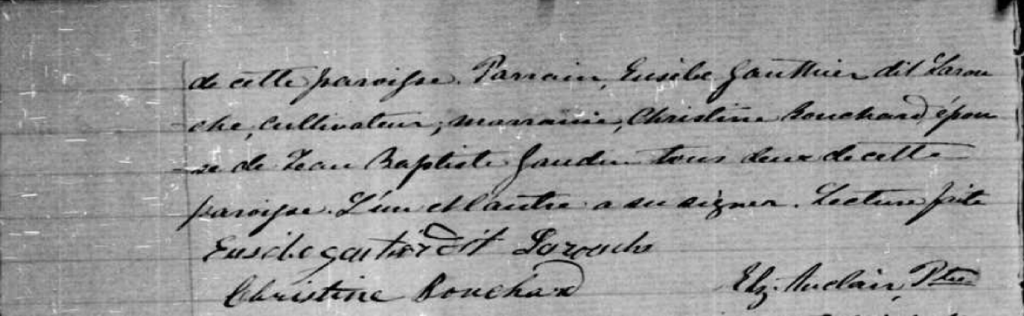 de cette paroisse. Parrain, Eusèbe Gauthier dit Larou
che, cultivateur; marraine, Christine Bouchard épou
se de Jean Baptiste Gaudin tous deux de cette
paroisse. L'un et l'autre a su signer. Lecture faite
Eusèbe gautier Dit Larouche
Christine Bouchard Elz. Auclair, Ptre